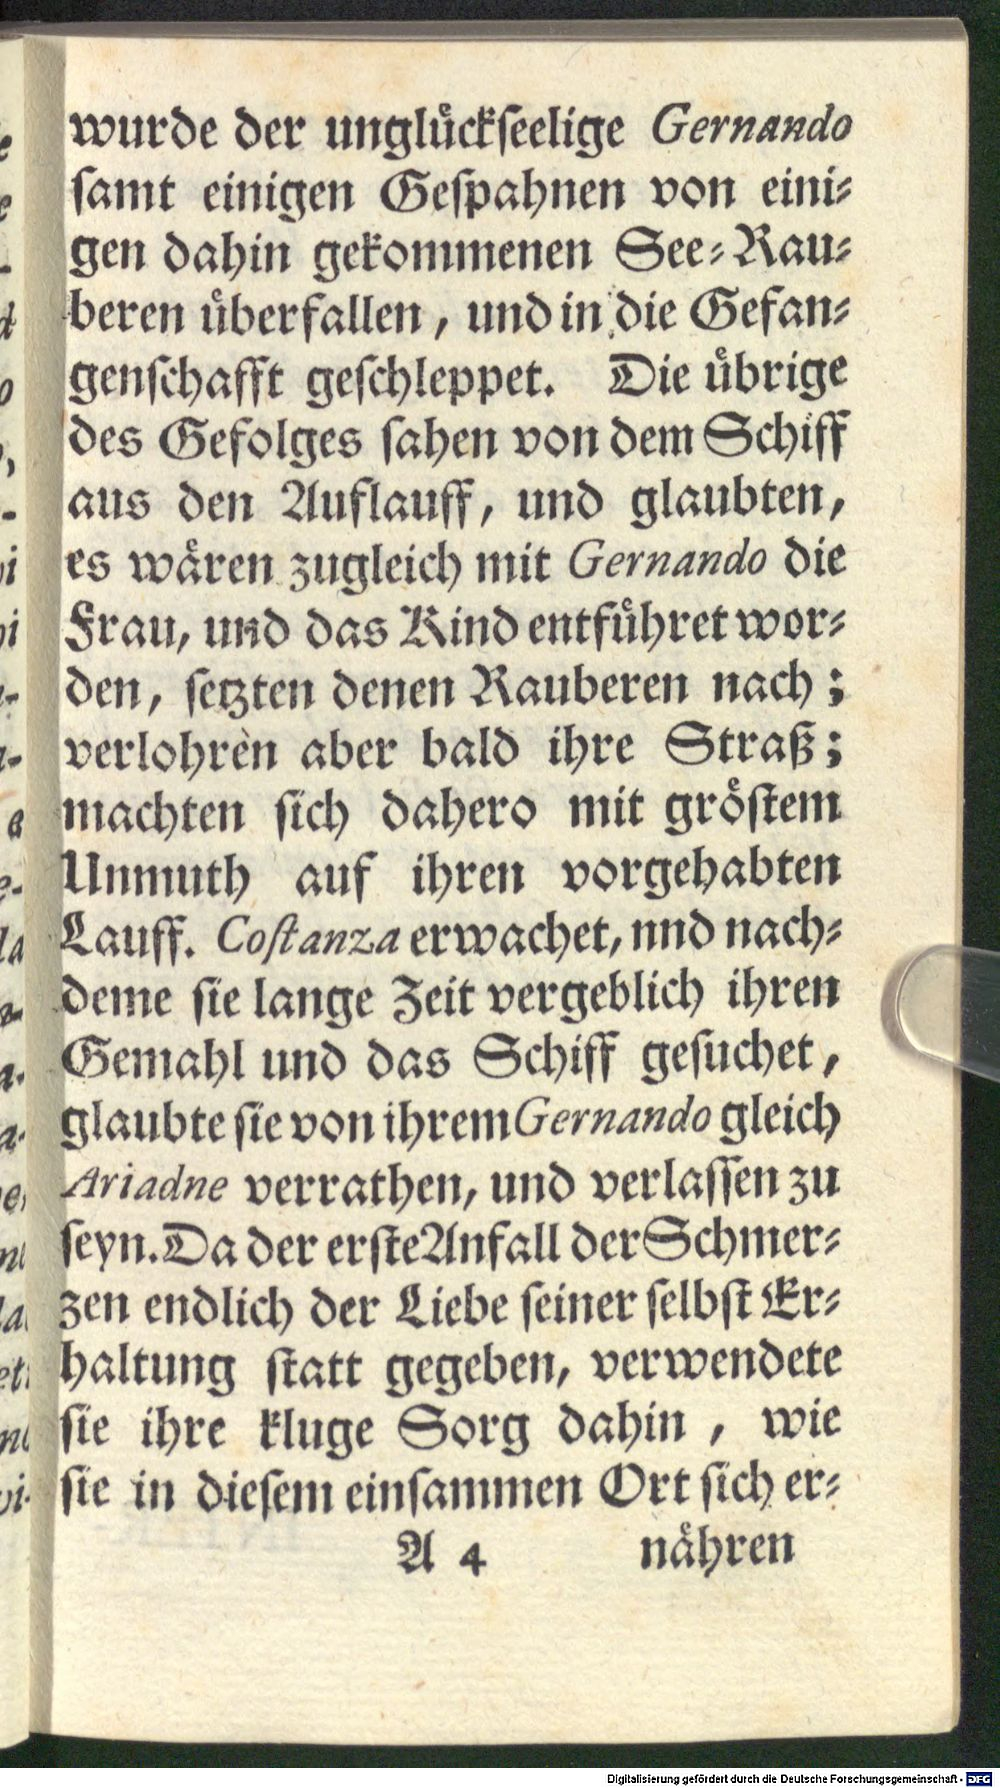 wurde der unglückseelige Gernando
samt einigen Gespahnen von eini-
gen dahin gekommenen See-Rau-
beren überfallen, und in die Gefan-
genschafft geschleppet. Die übrige
des Gefolges sahen von dem Schiff
aus den Auflauff, und glaubten,
es wären zugleich mit Gernando die
Frau, und das Kind entführet wor-
den, setzten denen Rauberen nach;
verlohrèn aber bald ihre Straß;
machten sich dahero mit gröstem
Unmuth auf ihren vorgehabten
Lauff. Costanza erwachet, nnd nach-
deme sie lange Zeit vergeblich ihren
Gemahl und das Schiff gesuchet,
glaubte sie von ihrem Gernando gleich
Ariadne verrathen, und verlassen zu
seyn. Da der erste Anfall der Schmer-
zen endlich der Liebe seiner selbst Er-
haltung statt gegeben, verwendete
sie ihre kluge Sorg dahin, wie
sie in diesem einsammen Ort sich er-
A 4 nähren
Digitalisierung gefördert durch die Deutsche Forschungsgemeinschaft - DFG